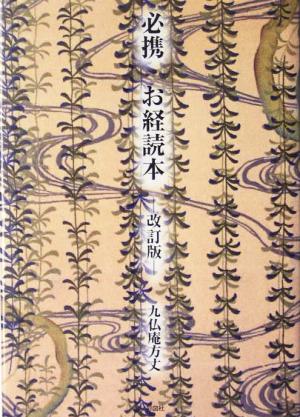 必携 お経読本
—改訂版—
九仏庵方丈